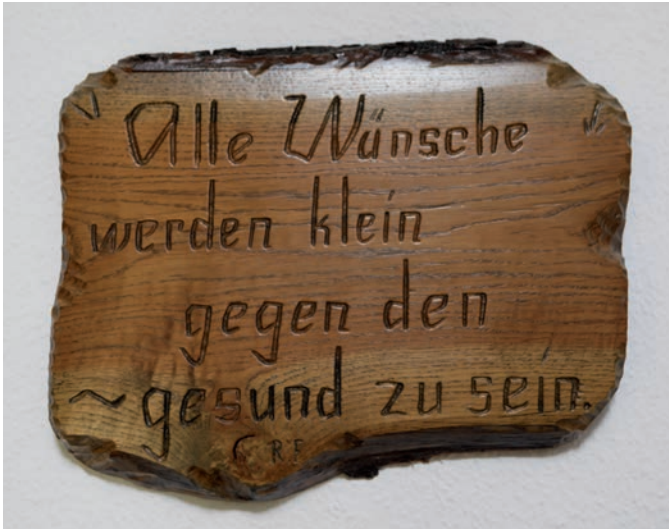 Alle Wünsche
werden klein
gegen den
~gesund zu sein.